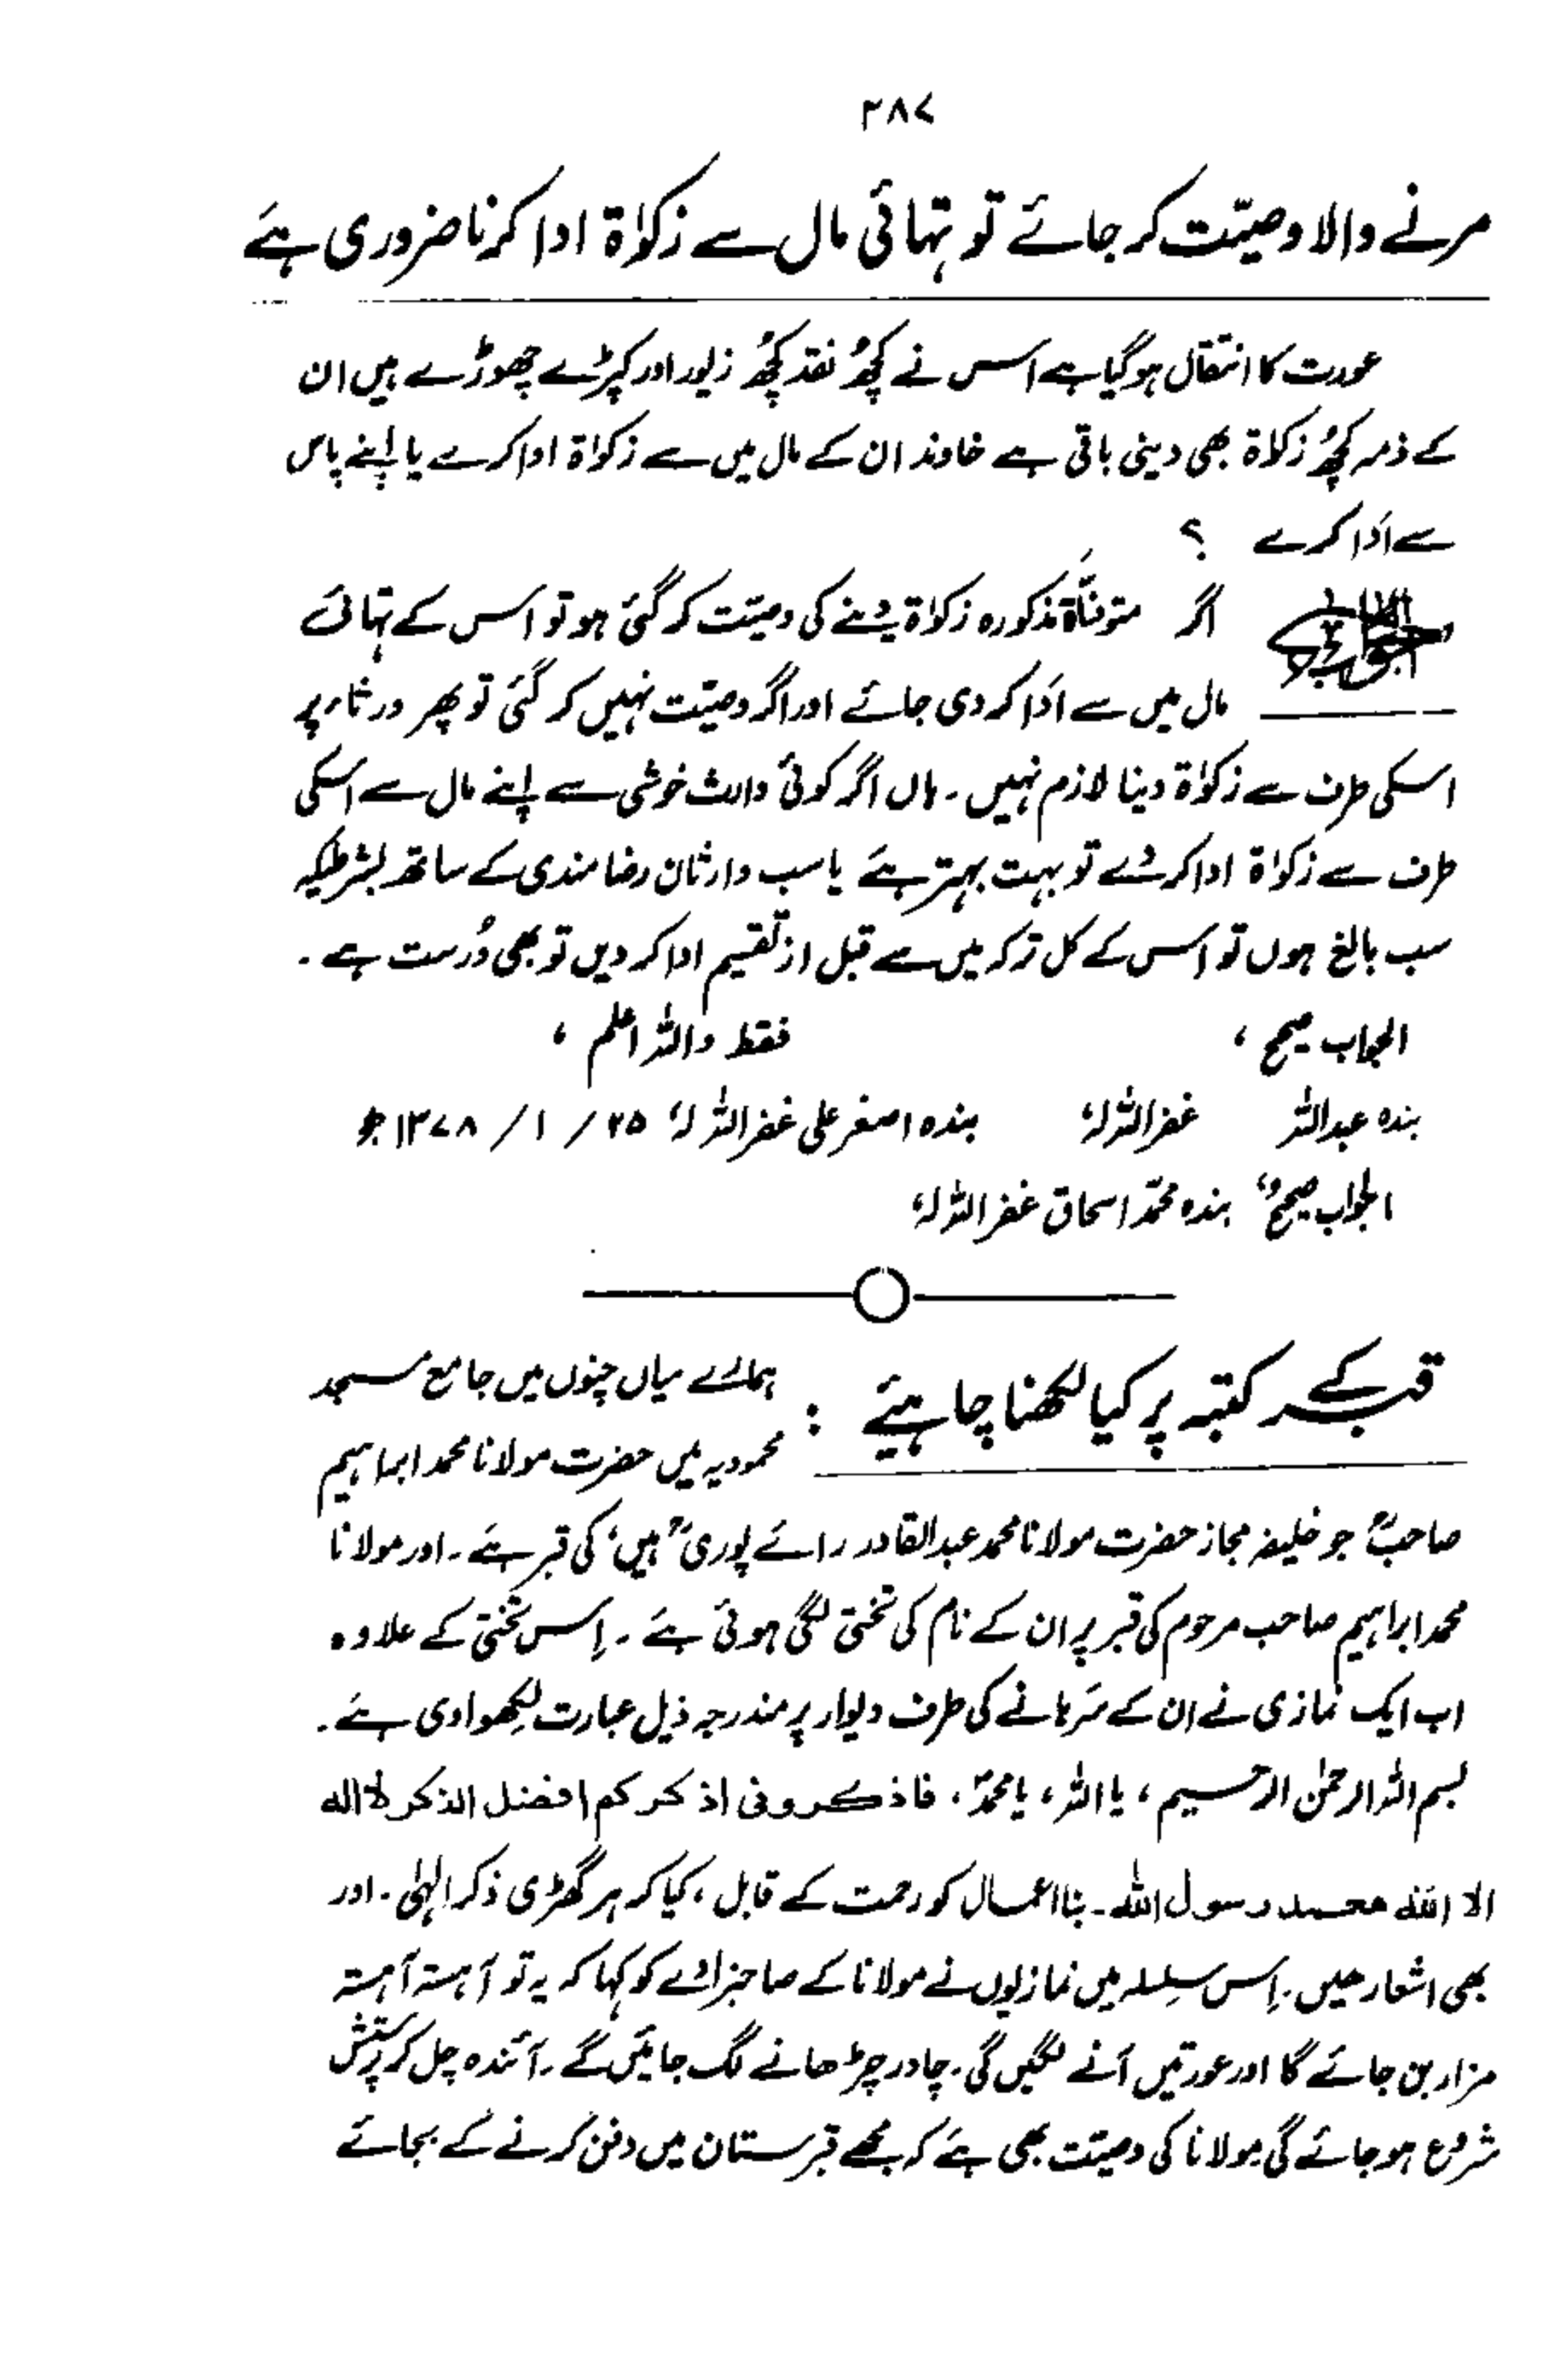 ۲۸۷
مرنے والا وصیّت کر جائے تو تہائی مال سے زکوٰۃ ادا کرنا ضروری ہے
عورت کا انتقال ہوگیا ہے اس نے کچھ نقد کچھ زیور اور کپڑے چھوڑے ہیں ان
کے ذمہ کچھ زکاۃ بھی دینی باقی ہے خاوند ان کے مال میں سے زکوٰۃ ادا کرے یا اپنے پاس
سے اَدا کرے ؟
الجواب اگر متوفّاۃ مذکورہ زکوٰۃ دینے کی وصیّت کر گئی ہو تو اس کے تہائی
مال میں سے اَدا کر دی جائے اور اگر وصیّت نہیں کر گئی تو پھر ورثاء پر
اسکی طرف سے زکوٰۃ دینا لازم نہیں۔ ہاں اگر کوئی وارث خوشی سے اپنے مال سے اسکی
طرف سے زکوٰۃ ادا کر دے تو بہت بہتر ہے یا سب وارثان رضا مندی کے ساتھ بشرطیکہ
سب بالغ ہوں تو اس کے کل ترکہ میں سے قبل از تقسیم ادا کر دیں تو بھی دُرست ہے ۔
الجواب صحیح ، فقط واللہ اعلم ،
بندہ عبداللہ غفراللہ لہٗ بندہ اصغر علی غفراللہ لہٗ ۲۵ / ۱ / ۱۳۷۸ ھ
الجواب صحیح بندہ محمّد اسحاق غفراللہ لہٗ
قبر کے کتبہ پر کیا لکھنا چاہیئے : ہمارے میاں چنوں میں جامع مسجد
محمودیہ میں حضرت مولانا محمد ابراہیم
صاحبؒ جو خلیفہ مجاز حضرت مولانا محمد عبدالقادر رائے پوریؒ ہیں کی قبر ہے۔ اور مولانا
محمد ابراہیم صاحب مرحوم کی قبر پر ان کے نام کی تختی لگی ہوئی ہے ۔ اِس تختی کے علاوہ
اب ایک نمازی نے ان کے سَرہانے کی طرف دیوار پر مندرجہ ذیل عبارت لِکھوا دی ہے ۔
بسم اللہ الرحمٰن الرحیم ، یا اللہ ، یا محمدؐ ، فاذکرونی اذکرکم افضل الذکر لا الہ
الا اللہ محمد رسول اللہ ۔ بنا اعمال کو رحمت کے قابل ، کیا کر ہر گھڑی ذکر الٰہی ۔ اور
بھی اشعار ہیں ۔ اِس سِلسلہ میں نمازیوں نے مولانا کے صاحبزادے کو کہا کہ یہ تو آہستہ آہستہ
مزار بن جائے گا اور عورتیں آنے لگیں گی ۔ چادر چڑھانے لگ جائیں گے ۔ آئندہ چل کر پرستش
شروع ہو جائے گی مولانا کی وصیّت بھی ہے کہ مجھے قبرستان میں دفن کرنے کے بجائے